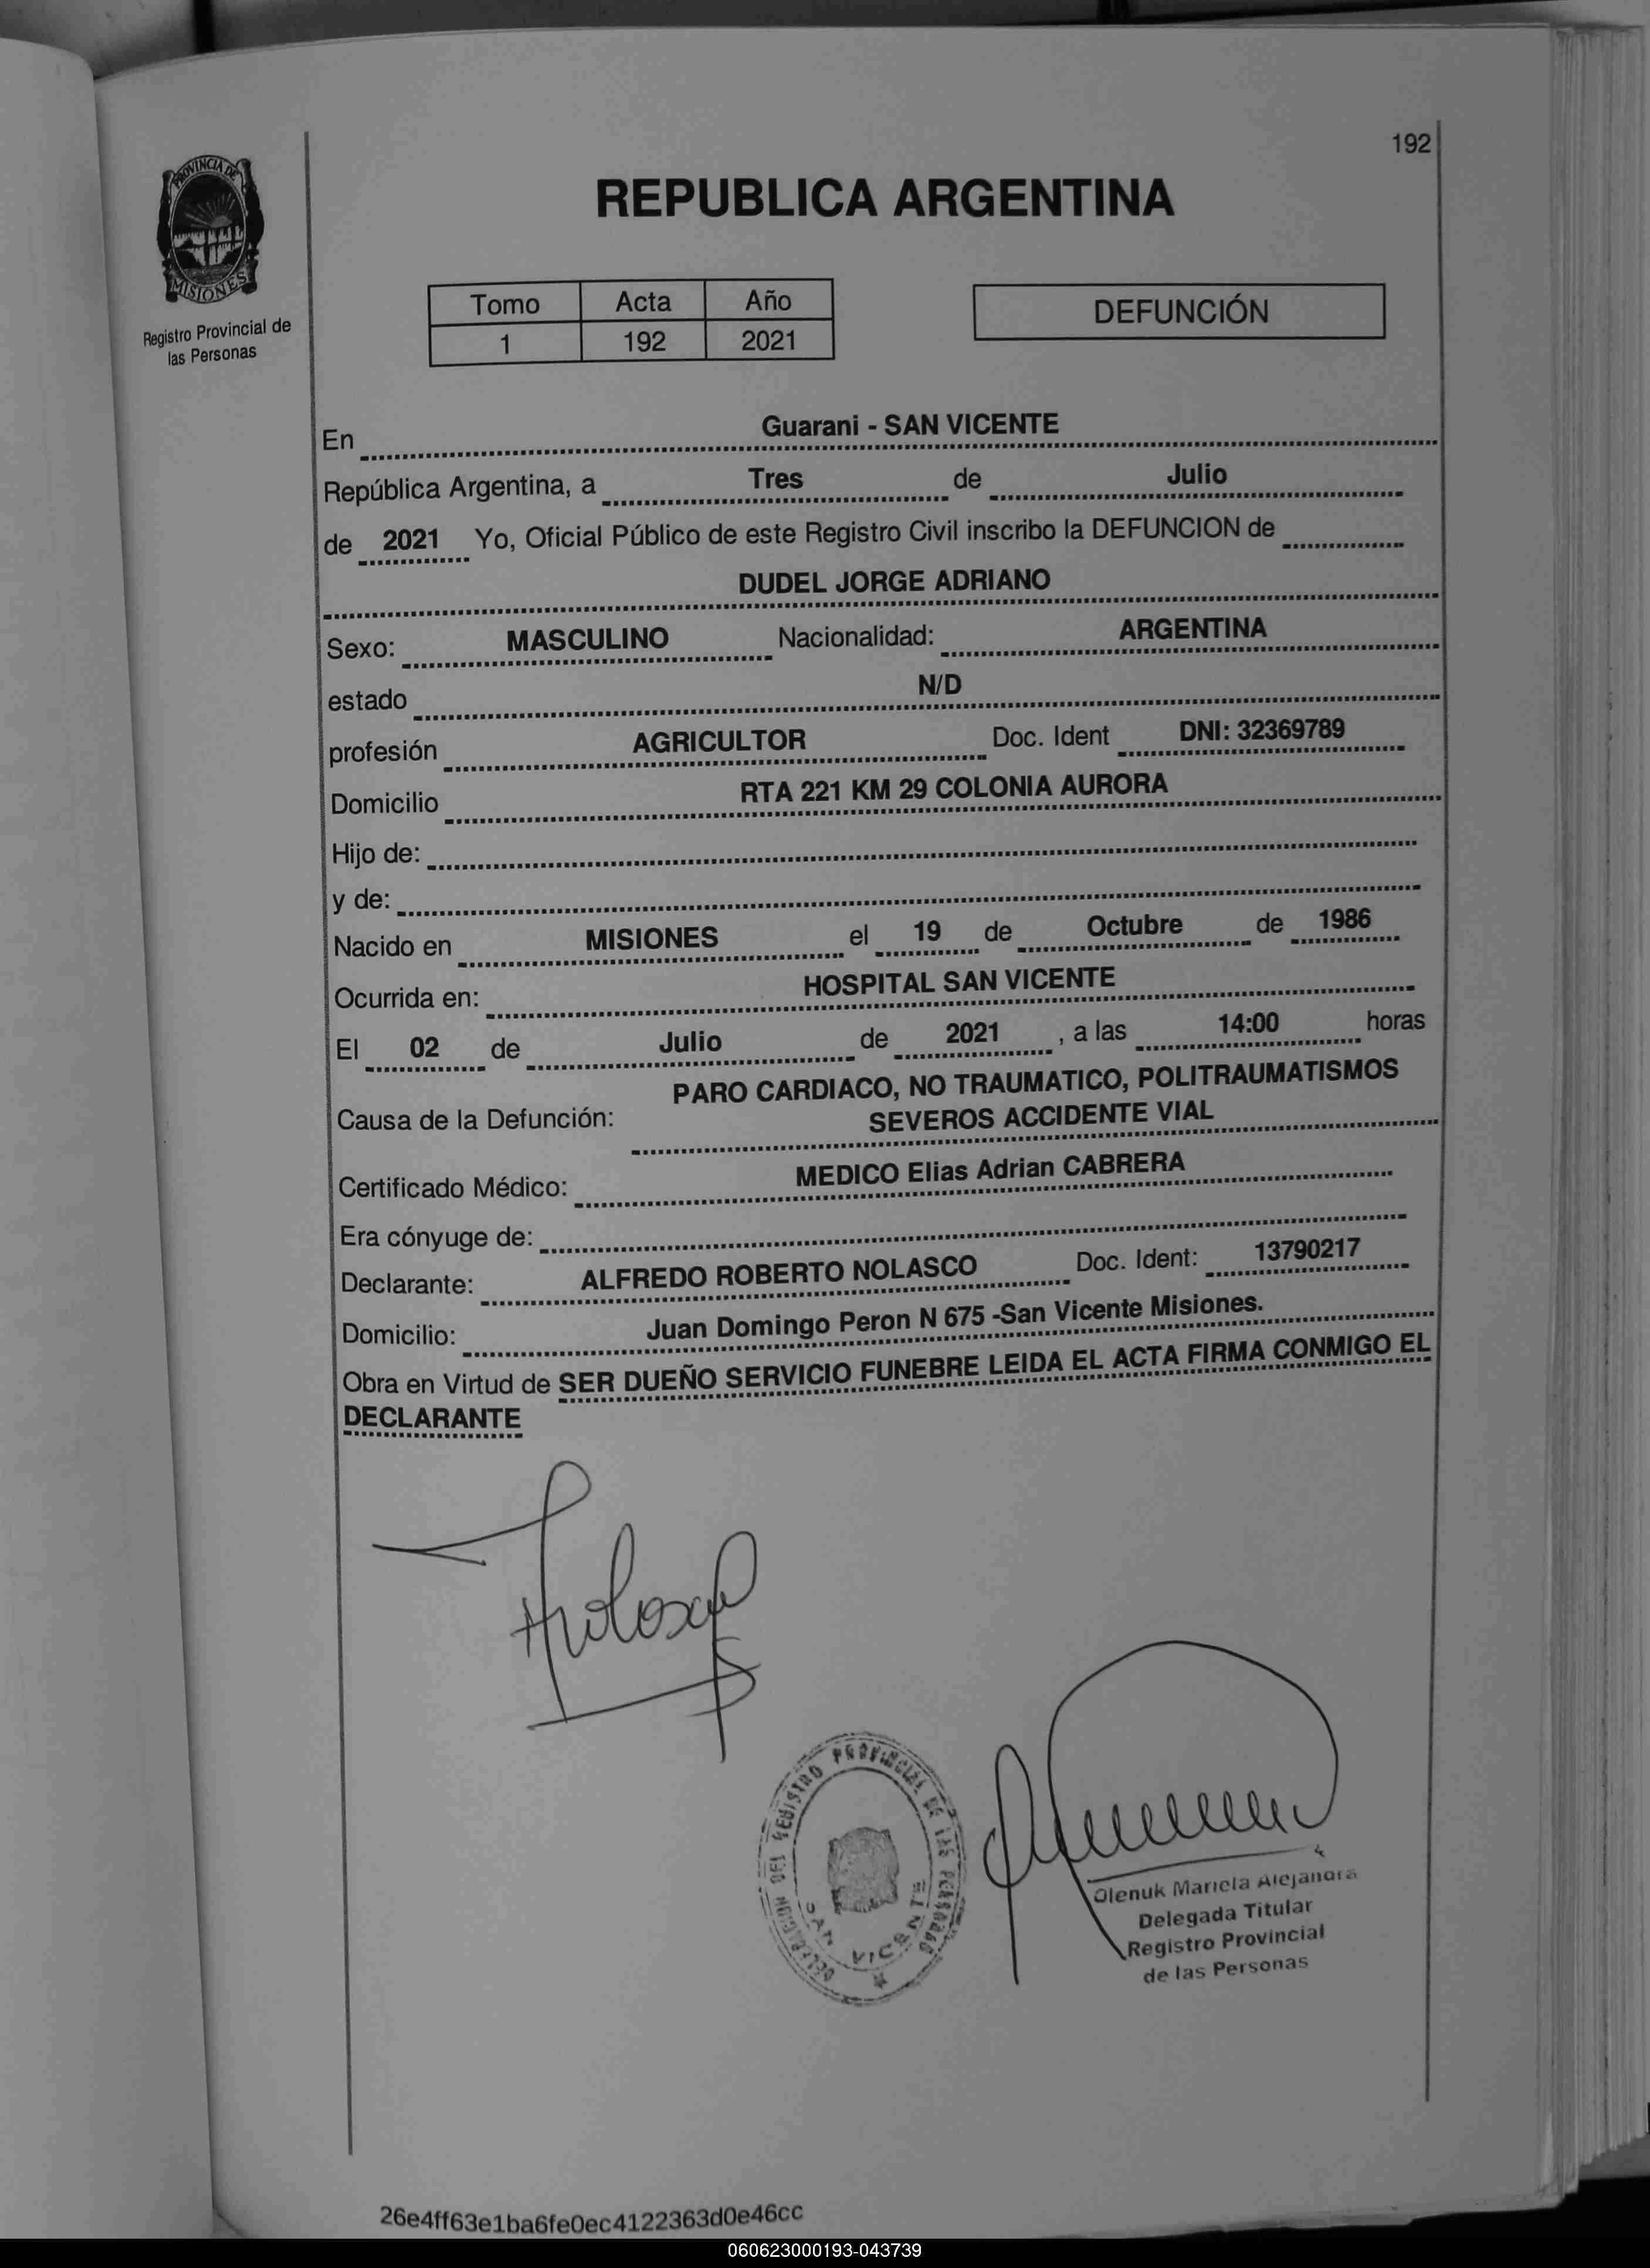 192
PROVINCIA DE
MISIONES
Registro Provincial de
las Personas
REPUBLICA ARGENTINA
Tomo Acta Año
1 192 2021
DEFUNCIÓN
En Guarani - SAN VICENTE
República Argentina, a Tres de Julio
de 2021 Yo, Oficial Público de este Registro Civil inscribo la DEFUNCION de
DUDEL JORGE ADRIANO
Sexo: MASCULINO Nacionalidad: ARGENTINA
estado N/D
profesión AGRICULTOR Doc. Ident DNI: 32369789
Domicilio RTA 221 KM 29 COLONIA AURORA
Hijo de:
y de:
Nacido en MISIONES el 19 de Octubre de 1986
Ocurrida en: HOSPITAL SAN VICENTE
El 02 de Julio de 2021 , a las 14:00 horas
PARO CARDIACO, NO TRAUMATICO, POLITRAUMATISMOS
Causa de la Defunción: SEVEROS ACCIDENTE VIAL
Certificado Médico: MEDICO Elias Adrian CABRERA
Era cónyuge de:
Declarante: ALFREDO ROBERTO NOLASCO Doc. Ident: 13790217
Domicilio: Juan Domingo Peron N 675 -San Vicente Misiones.
Obra en Virtud de SER DUEÑO SERVICIO FUNEBRE LEIDA EL ACTA FIRMA CONMIGO EL
DECLARANTE
DELEGACION DEL REGISTRO PROVINCIAL DE LAS PERSONAS
SAN VICENTE
Olenuk Mariela Alejandra
Delegada Titular
Registro Provincial
de las Personas
26e4ff63e1ba6fe0ec4122363d0e46cc
060623000193-043739